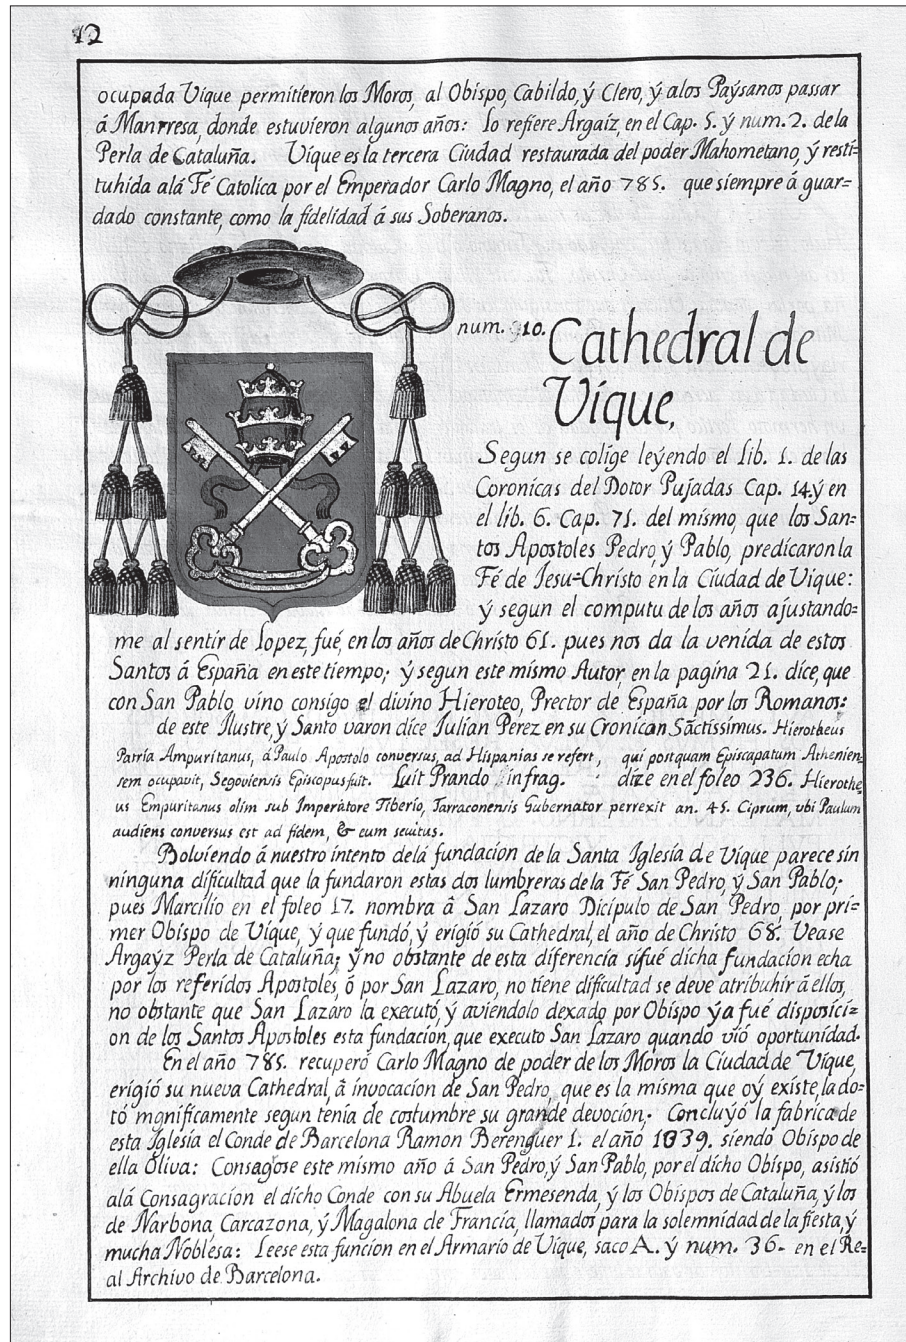 12
ocupada Vique permitieron los Moros, al Obispo, Cabildo, ý Clero, ý alos Paýsanos passar
á Manrresa, donde estuvieron algunos años: lo refiere Argaíz, en el Cap. 5. ý num. 2. de la
Perla de Cataluña. Vique es la tercera Ciudad restaurada del poder Mahometano, ý resti=
tuhída alá Fé Catolica por el Emperador Carlo Magno, el año 785. que siempre á guar=
dado constante, como la fidelidad á sus Soberanos.
num. 10. Cathedral de
Vique,
Segun se colige leýendo el lib. 1. de las
Coronicas del Dotor Pujadas Cap. 14. ý en
el lib. 6. Cap. 71. del mismo, que los San=
tos Apostoles Pedro, ý Pablo, predicaron la
Fé de Jesu=Christo en la Ciudad de Vique:
ý segun el computu de los años ajustando=
me al sentir de Lopez, fué, en los años de Christo 61. pues nos da la venida de estos
Santos á España en este tiempo; ý segun este mismo Autor, en la pagina 21. dice, que
con San Pablo, vino consigo el divino Hieroteo, Prector de España por los Romanos:
de este Ilustre, ý Santo varon dice Julian Perez en su Cronican Sãctissimus. Hierotheus
Patria Ampuritanus, á Paulo Apostolo conversus, ad Hispanias se refert, qui postquam Episcapatum Athenien=
sem ocupavit, Segoviensis Episcopus fuit. Luit Prando infrag. dize en el foleo 236. Hierothe=
us Empuritanus olim sub Imperatore Tiberio, Tarraconensis Gubernator perrexit an. 45. Ciprum, vbi Paulum
audiens conversus est ad fidem, & eum sevitus.
Bolviendo á nuestro intento delá fundacion de la Santa Iglesia de Vique parece sin
ninguna dificultad que la fundaron estas dos lumbreras de la Fé San Pedro, ý San Pablo;
pues Marcilio en el foleo 17. nombra â San Lazaro Dicipulo de San Pedro, por pri=
mer Obispo de Vique, ý que fundó, ý erigió su Cathedral, el año de Christo 68. Vease
Argaýz Perla de Cataluña; ý no obstante de esta diferencia si fué dicha fundacion echa
por los referidos Apostoles, ó por San Lazaro, no tiene dificultad se deve atribuhir á ellos,
no obstante que San Lazaro la executó, ý aviendolo dexado por Obispo ýa fué disposici=
on de los Santos Apostoles esta fundacion, que executo San Lazaro quando vió oportunidad.
En el año 785. recuperó Carlo Magno de poder de los Moros la Ciudad de Vique,
erigió su nueva Cathedral, â invocacion de San Pedro, que es la misma que oý existe, la do=
tó mgnificamente segun tenia de costumbre su grande devocion; Concluýó la fabrica de
esta Iglesia el Conde de Barcelona Ramon Berenguer 1. el año 1039. siendo Obispo de
ella Oliva: Consagose este mismo año á San Pedro, ý San Pablo, por el dicho Obispo, asistió
alá Consagracion el dicho Conde con su Abuela Ermesenda, ý los Obispos de Cataluña, ý los
de Narbona, Carcazona, ý Magalona de Francia, llamados para la solemnidad de la fiesta, ý
mucha Noblesa: Leese esta funcion en el Armario de Vique, saco A. ý num. 36. en el Re=
al Archivo de Barcelona.